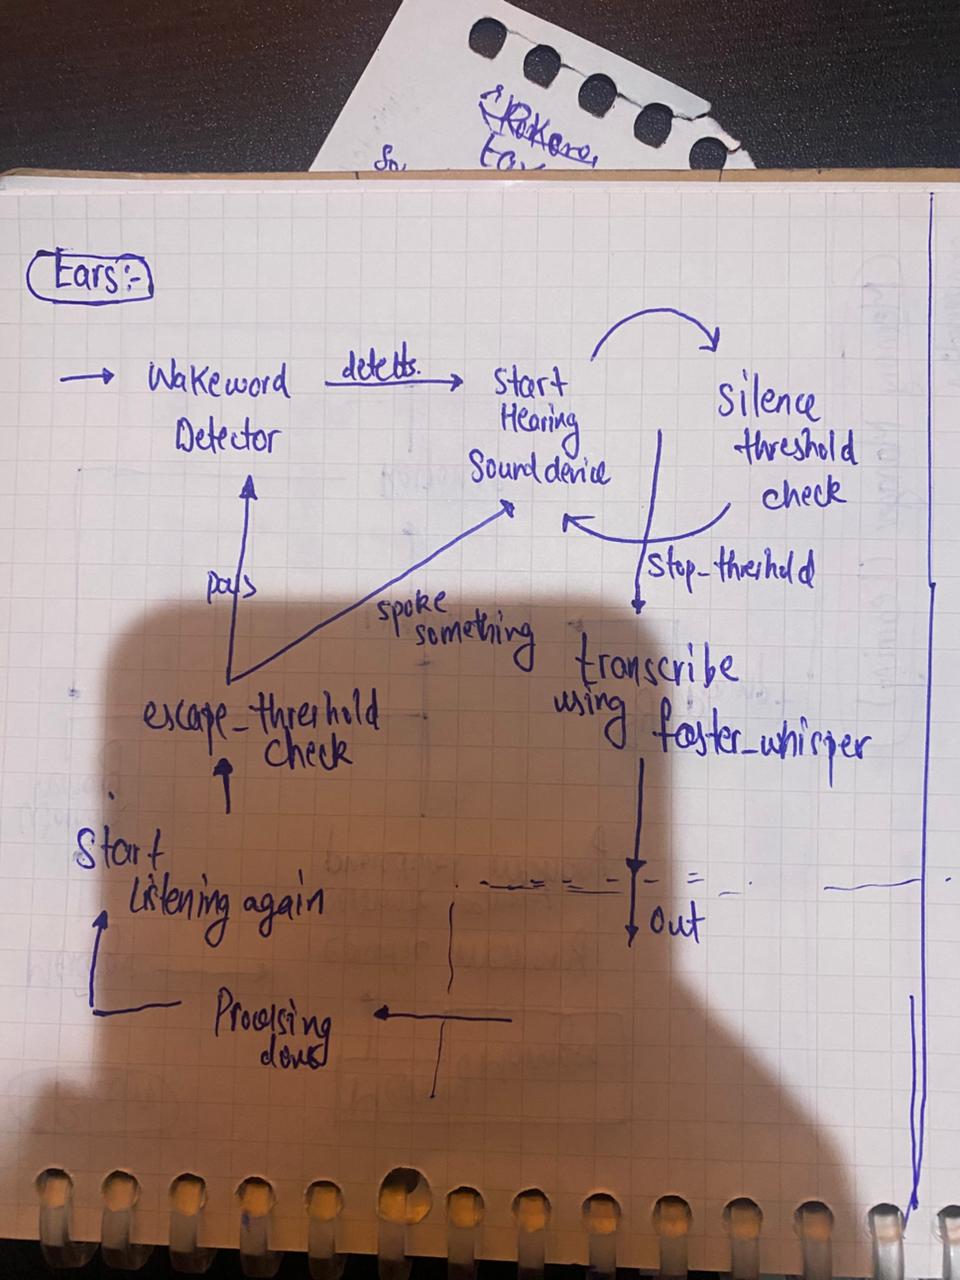 Ears:-
Wakeword
Detector
detects.
Start
Hearing
Sounddevice
Silence
threshold
check
stop_threshold
transcribe
using faster_whisper
out
Processing
done
Start
Listening again
escape_threshold
check
spoke
something